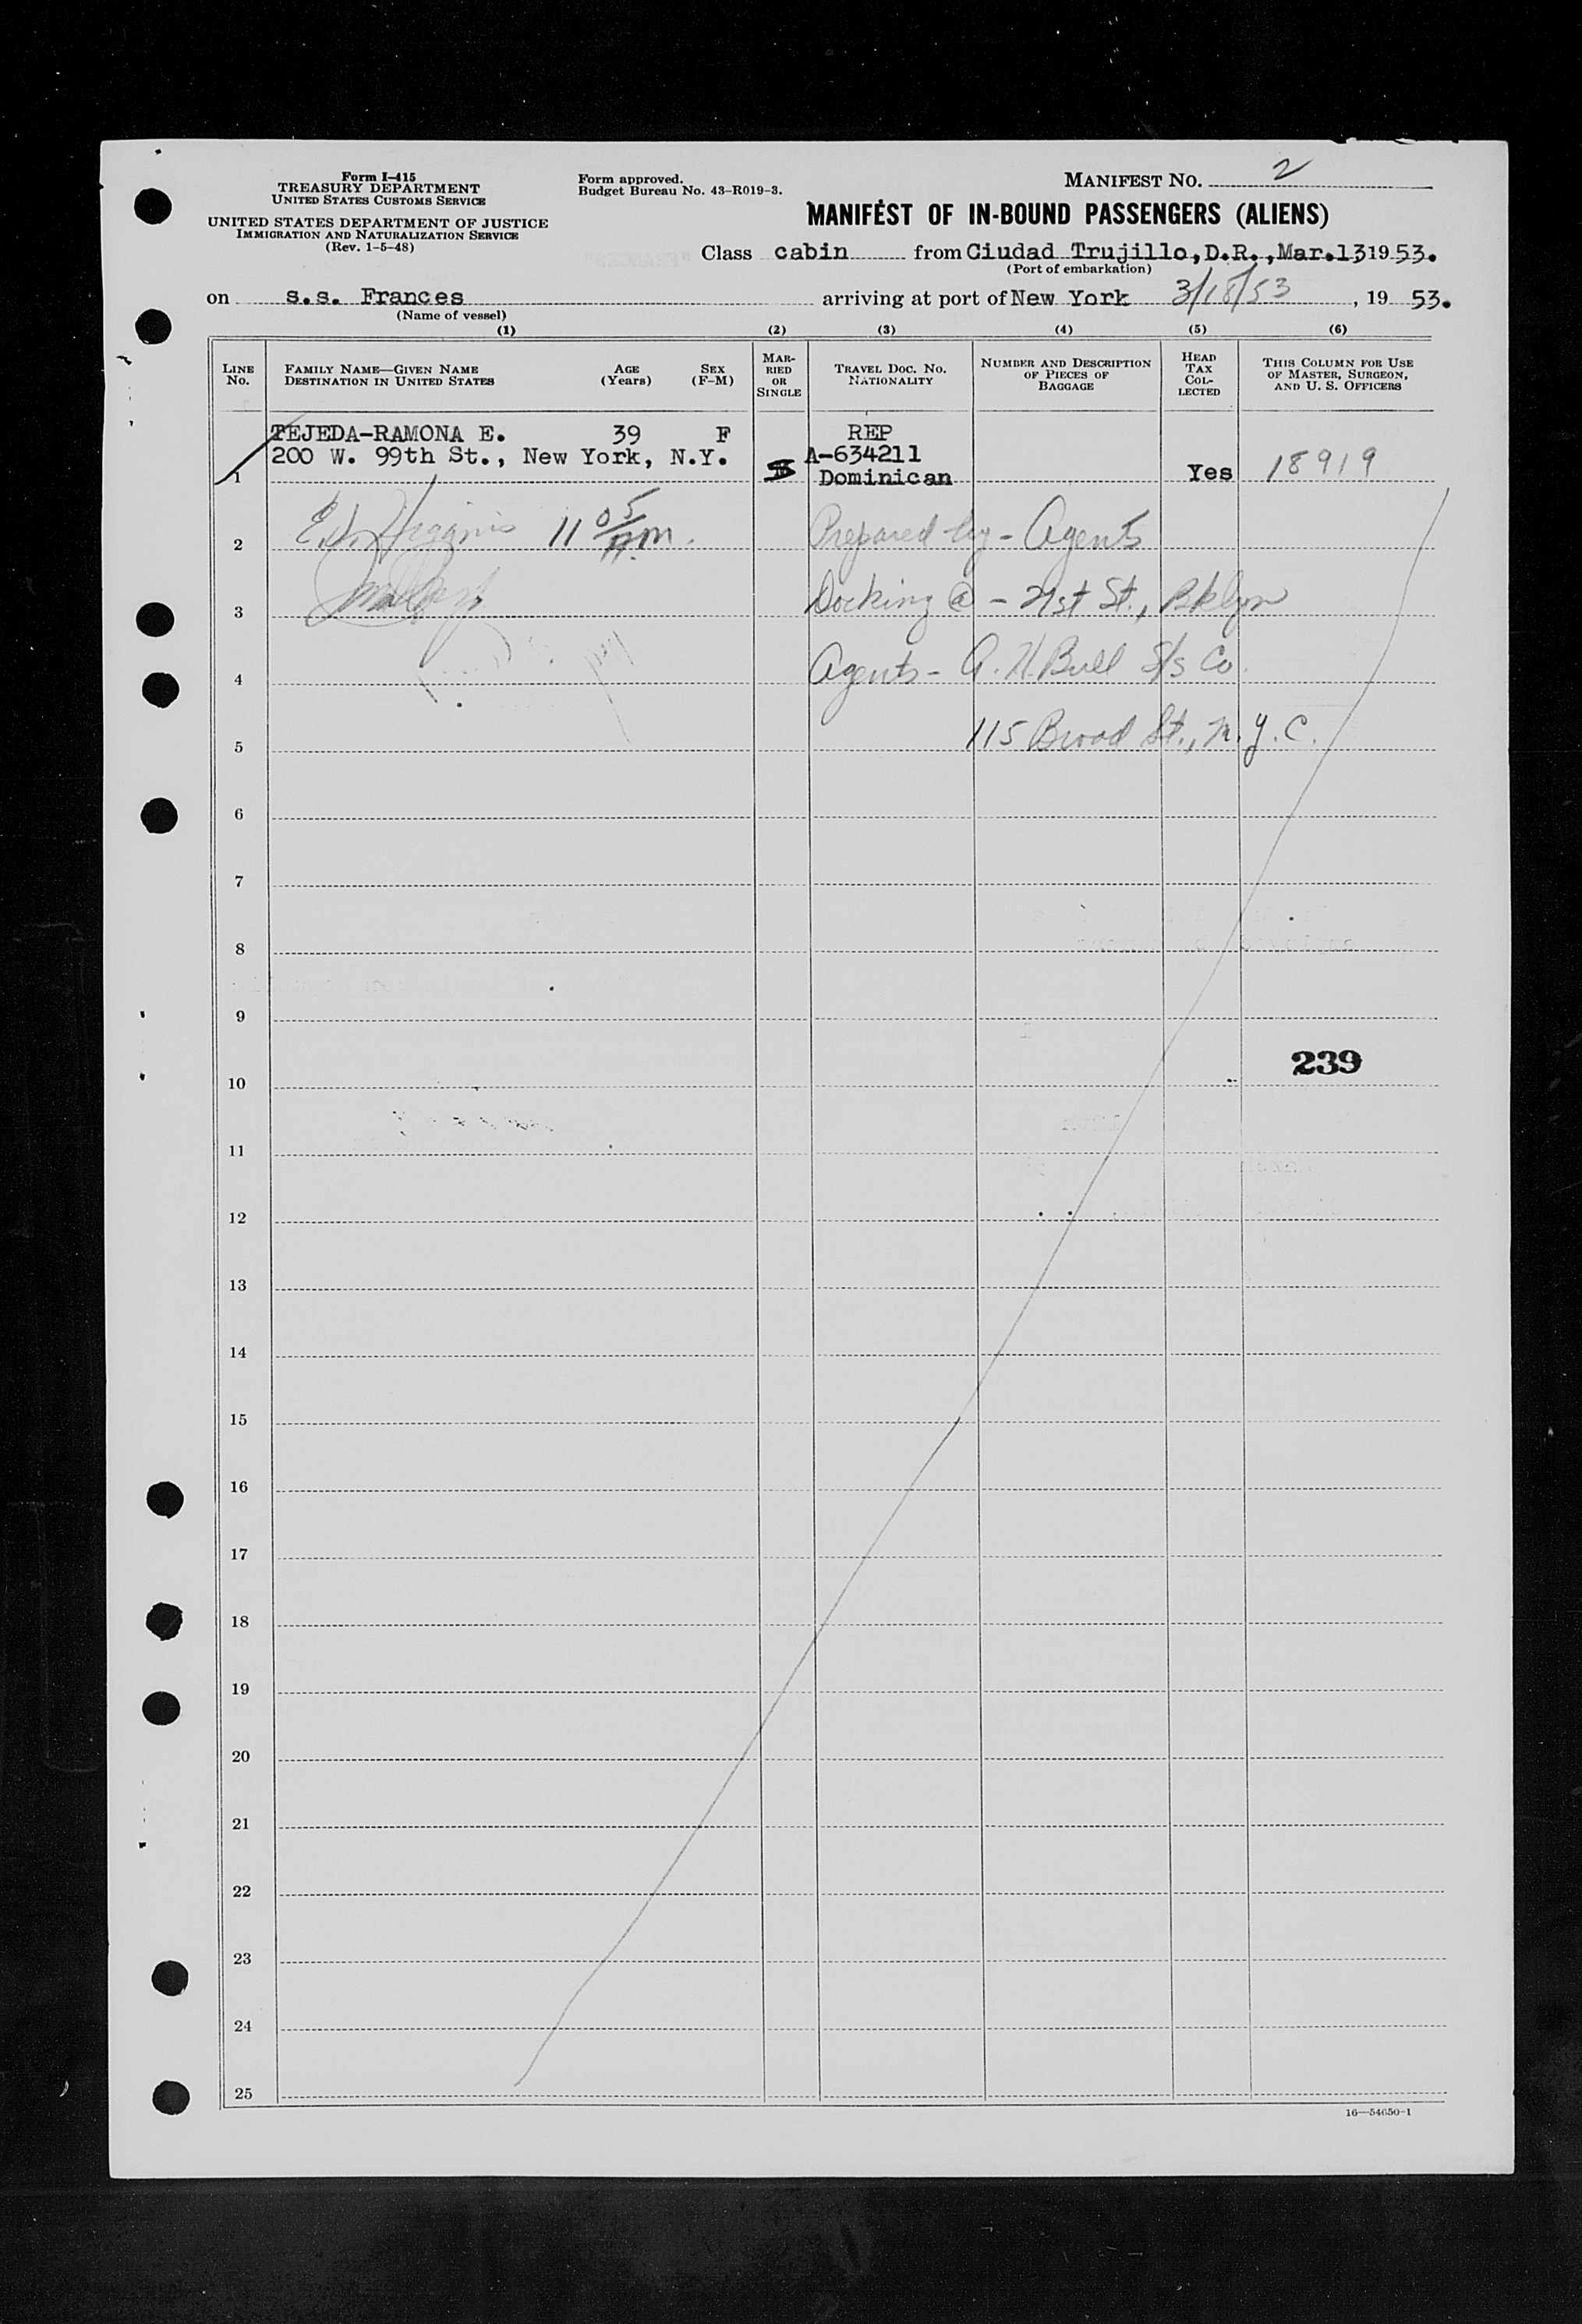 Form I-415
TREASURY DEPARTMENT
UNITED STATES CUSTOMS SERVICE
UNITED STATES DEPARTMENT OF JUSTICE
IMMIGRATION AND NATURALIZATION SERVICE
(Rev. 1-5-48)
Form approved.
Budget Bureau No. 43-R019-3.
MANIFEST NO. 2
MANIFEST OF IN-BOUND PASSENGERS (ALIENS)
Class cabin from Ciudad Trujillo, D.R., Mar.13 1953.
(Port of embarkation)
on s.s. Frances arriving at port of New York 3/18/53, 19 53.
(Name of vessel)
(1) (2) (3) (4) (5) (6)
LINE No.
FAMILY NAME—GIVEN NAME
DESTINATION IN UNITED STATES
AGE
(Years)
SEX
(F-M)
MAR-
RIED
OR
SINGLE
TRAVEL DOC. NO.
NATIONALITY
NUMBER AND DESCRIPTION
OF PIECES OF
BAGGAGE
HEAD
TAX
COL-
LECTED
THIS COLUMN FOR USE
OF MASTER, SURGEON,
AND U. S. OFFICERS
TEJEDA-RAMONA E. 39 F REP
200 W. 99th St., New York, N.Y. A-634211
1 S Dominican Yes 18919
2 Higgins 11 05 AM. Prepared by - Agents
3 Docking @ - 21st St., Bklyn
4 Agents - A. H. Bull S/s Co.
5 115 Broad St., N.Y.C.
6
7
8
9
239
10
11
12
13
14
15
16
17
18
19
20
21
22
23
24
25
16—54650-1